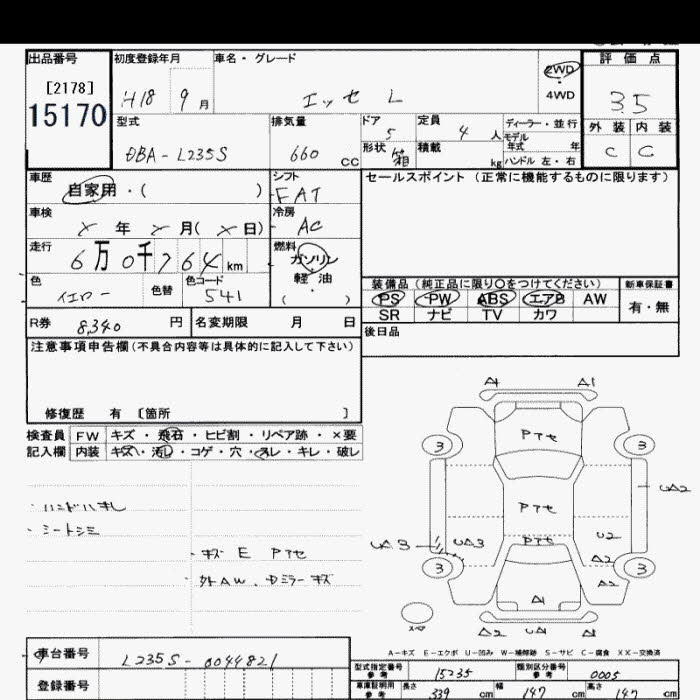 出品番号 初度登録年月 車名・グレード 2WD 評価点
[2178] H18 9月 エッセ L 4WD 3.5
15170 型式 排気量 ドア 定員 ディーラー・並行 外装 内装
DBA-L235S 660 CC 5 4 人 モデル年式 年 C C
形状 箱 積載 kg ハンドル 左・右
車歴 自家用・( ) シフト FAT セールスポイント (正常に機能するものに限ります)
車検 年 月( 日) 冷房 AC
走行 6万0千764km 燃料 ガソリン
色 イエロー 色替 色コード 541 軽油
・( )
装備品 (純正品に限り〇をつけてください) 新車保証書
PS PW ABS エアB AW 有・無
SR ナビ TV カワ
R券 8,340 円 名変期限 月 日 後日品
注意事項申告欄(不具合内容等は具体的に記入して下さい)
修復歴 有 [箇所 ]
検査員 FW キズ・飛石・ヒビ割・リペア跡・×要
記入欄 内装 キズ・汚レ・コゲ・穴・スレ・キレ・破レ
A1 A1
Pアセ
3 3
UA2
Pアセ
・ハンドルスレ
・シートシミ
UA3 UA3 Pアセ U2
・キズ E Pアセ
A2
3 3
・外AW、Dミラーキズ
A2
A1
A2 U2 A1
A-キズ E-エクボ U-凹み W-補修跡 S-サビ C-腐食 XX-交換済
車台番号 L235S-0044821 型式指定番号 参考 15235 類別区分番号 参考 0005
登録番号 車庫証明用 参考 長さ 339 cm 幅 147 cm 高さ 147 cm